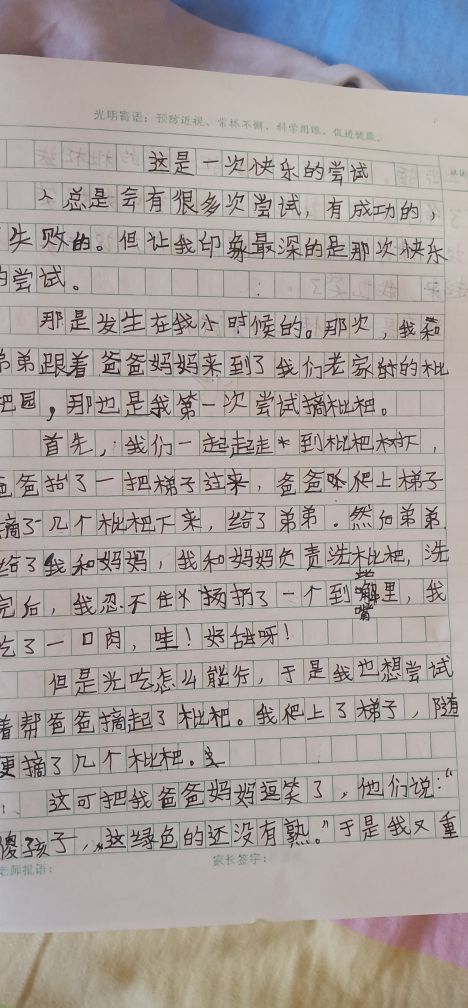 光明寄语：预防近视、常抓不懈、科学用眼、促进健康。
这是一次快乐的尝试
人总是会有很多次尝试，有成功的，
失败的。但让我印象最深的是那次快乐
的尝试。
那是发生在我小时候的。那次，我和
弟弟跟着爸爸妈妈来到了我们老家的枇
杷园，那也是我第一次尝试摘枇杷。
首先，我们一起走到枇杷树下，
爸爸抬了一把梯子过来，爸爸爬上梯子
摘了几个枇杷下来，给了弟弟．然后弟弟
给了我和妈妈，我和妈妈负责洗枇杷，洗
完后，我忍不住扔了一个到嘴里，我
吃了一口肉，哇！好甜呀！
但是光吃怎么能行，于是我也想尝试
着帮爸爸摘起了枇杷。我爬上了梯子，随
便摘了几个枇杷。
这可把我爸爸妈妈逗笑了，他们说：“
傻孩子，这绿色的还没有熟。”于是我又重
老师批语：
家长签字：